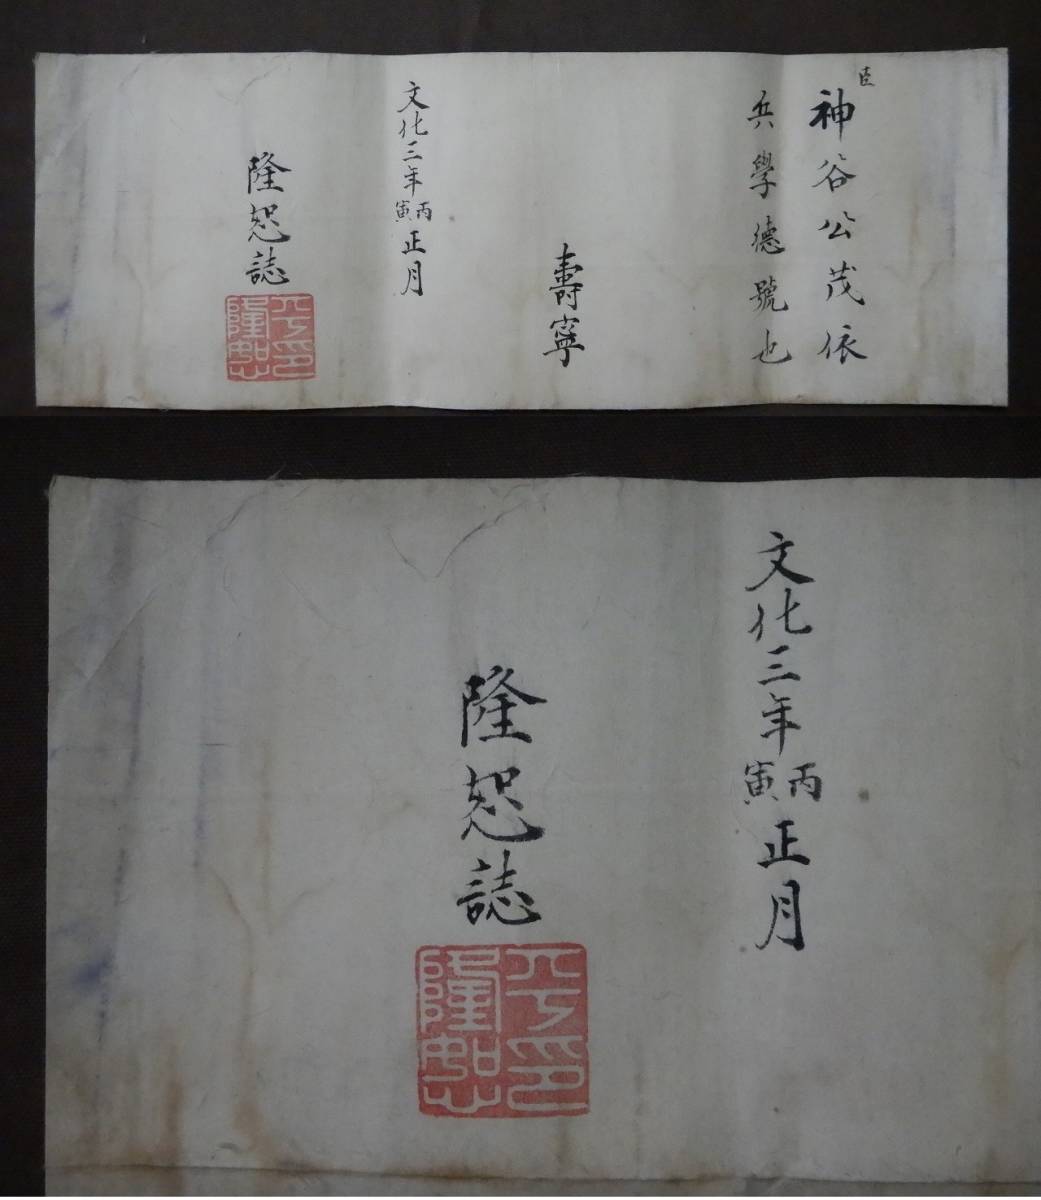 臣神谷公茂依
兵學德號也
壽寧
文化三年丙寅正月
隆恕誌
平印
隆恕
文化三年丙寅正月
隆恕誌
平印
隆恕